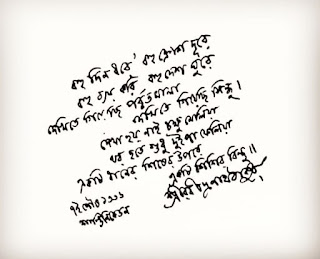 বহু দিন ধরে' বহু ক্রোশ দূরে
বহু ব্যয় করি বহু দেশ ঘুরে
দেখিতে গিয়েছি পর্ব্বতমালা
দেখিতে গিয়েছি সিন্ধু।
দেখা হয় নাই চক্ষু মেলিয়া
ঘর হতে শুধু দুই পা ফেলিয়া
একটি ধানের শিষের উপরে
একটি শিশির বিন্দু॥
৭ই পৌষ ১৩৩৬
শান্তিনিকেতন
শ্রীরবীন্দ্রনাথ ঠাকুর